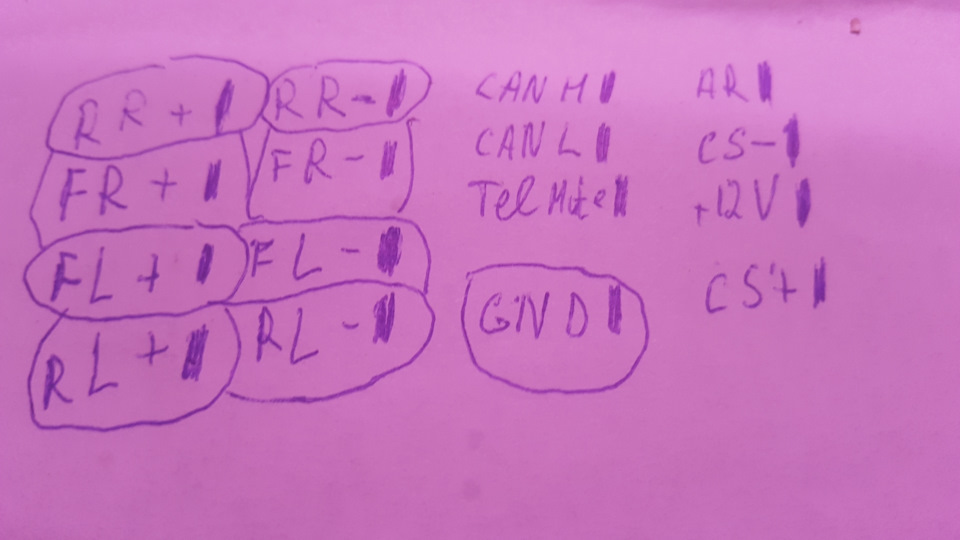 RR+ RR- CAN H AR
FR+ FR- CAN L CS-
FL+ FL- Tel Mute +12V
RL+ RL- GND CS+